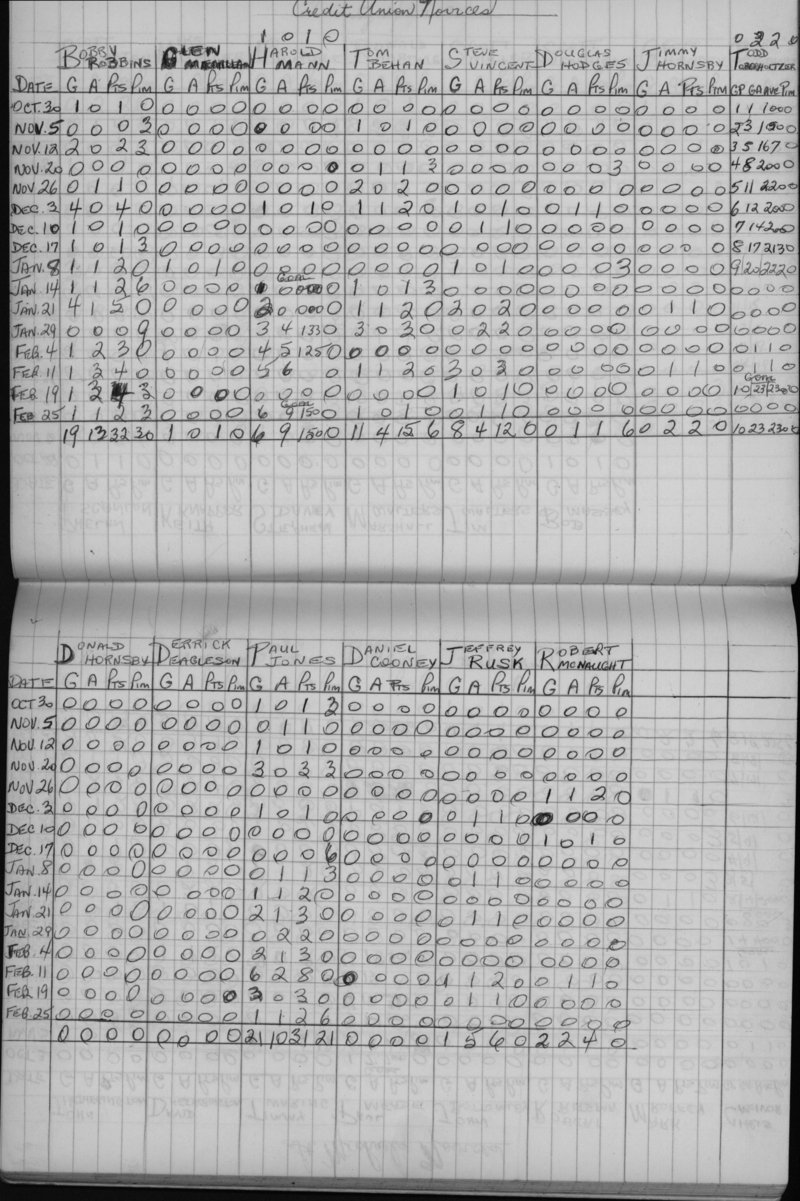 Credit Union Novices
1 0 1 0
0 3 2 2 0
BOBBY ROBBINS GLEN MCMILLAN HAROLD MANN TOM BEHAN STEVE VINCENT DOUGLAS HODGES JIMMY HORNSBY TODD
DATE G A Pts Pim G A Pts Pim G A Pts Pim G A Pts Pim G A Pts Pim G A Pts Pim G A Pts Pim GP GA AVE Pim
OCT. 30 1 0 1 0 0 0 0 0 0 0 0 0 0 0 0 0 0 0 0 0 0 0 0 0 0 0 0 0 1 1 1.00 0
NOV. 5 0 0 0 3 0 0 0 0 0 0 0 0 1 0 1 0 0 0 0 0 0 0 0 0 0 0 0 0 2 3 1.50 0
NOV. 12 2 0 2 3 0 0 0 0 0 0 0 0 0 0 0 0 0 0 0 0 0 0 0 0 0 0 0 0 3 5 1.67 0
NOV. 20 0 0 0 0 0 0 0 0 0 0 0 0 0 1 1 3 0 0 0 0 0 0 0 3 0 0 0 0 4 8 2.00 0
NOV 26 0 1 1 0 0 0 0 0 0 0 0 0 2 0 2 0 0 0 0 0 0 0 0 0 0 0 0 0 5 11 2.20 0
DEC. 3 4 0 4 0 0 0 0 0 1 0 1 0 1 1 2 0 1 0 1 0 0 1 1 0 0 0 0 0 6 12 2.00
DEC. 10 1 0 1 0 0 0 0 0 0 0 0 0 0 0 0 0 0 1 1 0 0 0 0 0 0 0 0 0 7 14 2.00
DEC. 17 1 0 1 3 0 0 0 0 0 0 0 0 0 0 0 0 0 0 0 0 0 0 0 0 0 0 0 0 8 17 2.13 0
JAN. 8 1 1 2 0 1 0 1 0 0 0 0 0 0 0 0 1 0 1 0 0 0 0 3 0 0 0 0 9 20 2.22 0
JAN. 14 1 1 2 6 0 0 0 0 Goal 0 0 0 0 1 0 1 3 0 0 0 0 0 0 0 0 0 0 0 0 0 0 0 0
JAN. 21 4 1 5 0 0 0 0 0 2 0 0.00 0 1 1 2 0 2 0 2 0 0 0 0 0 0 1 1 0 0 0 0 0
JAN. 29 0 0 0 9 0 0 0 0 3 4 1.33 0 3 0 3 0 0 2 2 0 0 0 0 0 0 0 0 0 0 0 0 0
FEB. 4 1 2 3 0 0 0 0 0 4 5 1.25 0 0 0 0 0 0 0 0 0 0 0 0 0 0 0 0 0 0 1 1 0
FEB 11 1 3 4 0 0 0 0 0 5 6 0 1 1 2 0 3 0 3 0 0 0 0 0 0 1 1 0 0 1 1 0
FEB 19 1 3 4 3 0 0 0 0 0 0 0 0 0 0 0 0 1 0 1 0 0 0 0 0 0 0 0 0 Goal 10 23 2.30 0
FEB 25 1 1 2 3 0 0 0 0 Goal 6 9 1.50 0 1 0 1 0 0 1 1 0 0 0 0 0 0 0 0 0 0 0 0 0
19 13 32 30 1 0 1 0 6 9 1.50 0 11 4 15 6 8 4 12 0 0 1 1 6 0 2 2 0 10 23 2.30 0
DONALD HORNSBY DERRICK DEAGLESON PAUL JONES DANIEL COONEY JEFFREY RUSK ROBERT MCNAUGHT
DATE G A Pts Pim G A Pts Pim G A Pts Pim G A Pts Pim G A Pts Pim G A Pts Pim
OCT 30 0 0 0 0 0 0 0 0 1 0 1 3 0 0 0 0 0 0 0 0 0 0 0 0
NOV. 5 0 0 0 0 0 0 0 0 0 1 1 0 0 0 0 0 0 0 0 0 0 0 0 0
NOV. 12 0 0 0 0 0 0 0 0 1 0 1 0 0 0 0 0 0 0 0 0 0 0 0 0
NOV. 20 0 0 0 0 0 0 0 0 3 0 3 3 0 0 0 0 0 0 0 0 0 0 0 0
NOV 26 0 0 0 0 0 0 0 0 0 0 0 0 0 0 0 0 0 0 0 0 1 1 2 0
DEC. 3 0 0 0 0 0 0 0 0 1 0 1 0 0 0 0 0 0 1 1 0 0 0 0 0
DEC 10 0 0 0 0 0 0 0 0 0 0 0 0 0 0 0 0 0 0 0 0 1 0 1 0
DEC. 17 0 0 0 0 0 0 0 0 0 0 0 6 0 0 0 0 0 0 0 0 0 0 0 0
JAN. 8 0 0 0 0 0 0 0 0 0 1 1 3 0 0 0 0 0 1 1 0 0 0 0 0
JAN. 14 0 0 0 0 0 0 0 0 1 1 2 0 0 0 0 0 0 0 0 0 0 0 0 0
JAN 21 0 0 0 0 0 0 0 0 2 1 3 0 0 0 0 0 0 1 1 0 0 0 0 0
JAN. 29 0 0 0 0 0 0 0 0 0 2 2 0 0 0 0 0 0 0 0 0 0 0 0 0
FEB. 4 0 0 0 0 0 0 0 0 2 1 3 0 0 0 0 0 0 0 0 0 0 0 0 0
FEB. 11 0 0 0 0 0 0 0 0 6 2 8 0 0 0 0 0 1 1 2 0 0 1 1 0
FEB 19 0 0 0 0 0 0 0 0 3 0 3 0 0 0 0 0 0 1 1 0 0 0 0 0
FEB 25 0 0 0 0 0 0 0 0 1 1 2 6 0 0 0 0 0 0 0 0 0 0 0 0
0 0 0 0 0 0 0 0 21 10 31 21 0 0 0 0 1 5 6 0 2 2 4 0